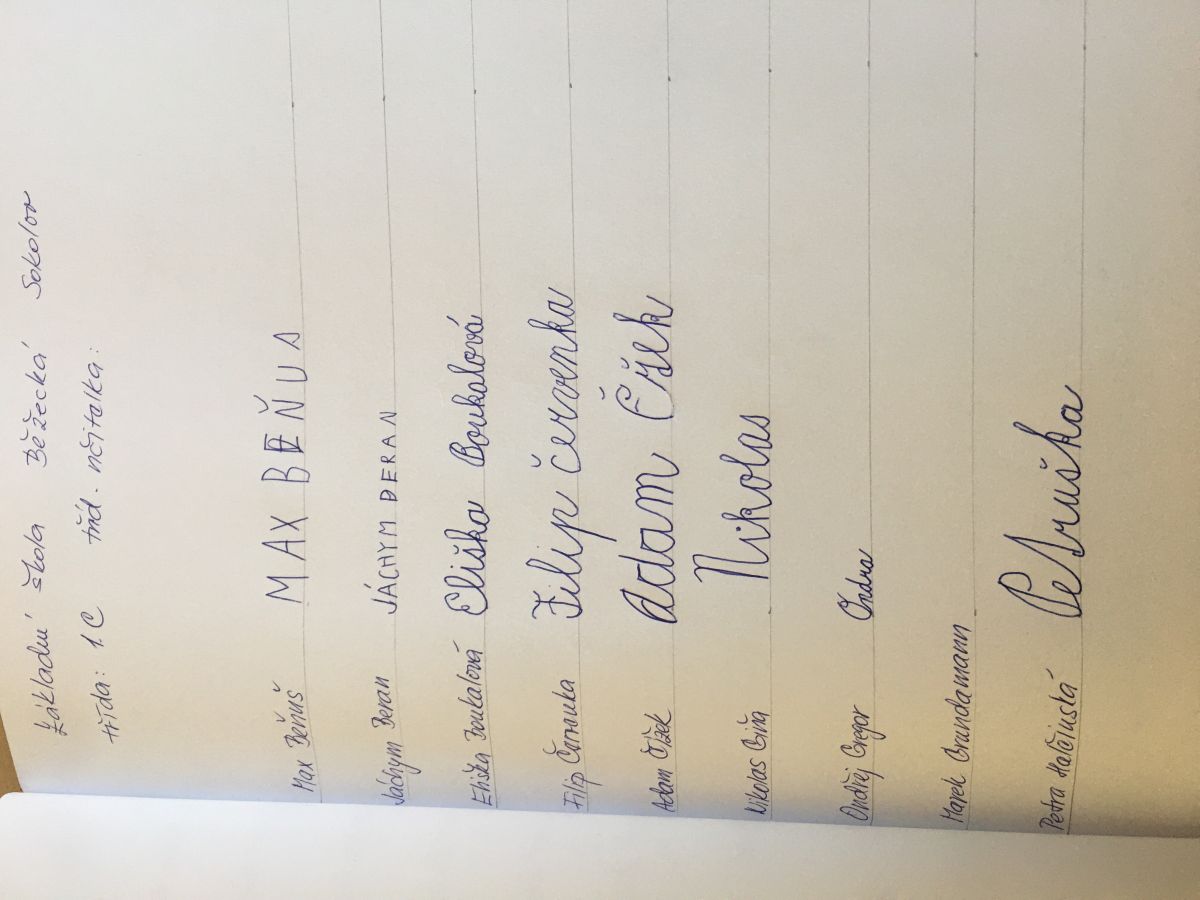 Základní škola Běžecká Sokolov
třída: 1.C tříd. učitelka:
Max Beňuš MAX BEŇUS
Jáchym Beran JÁCHYM BERAN
Eliška Boukalová Eliška Boukalová
Filip Červenka Filip Červenka
Adam Čížek Adam Čížek
Nikolas Nikolas
Ondřej Gregor Ondra
Marek Grundamann
Petra Petruška